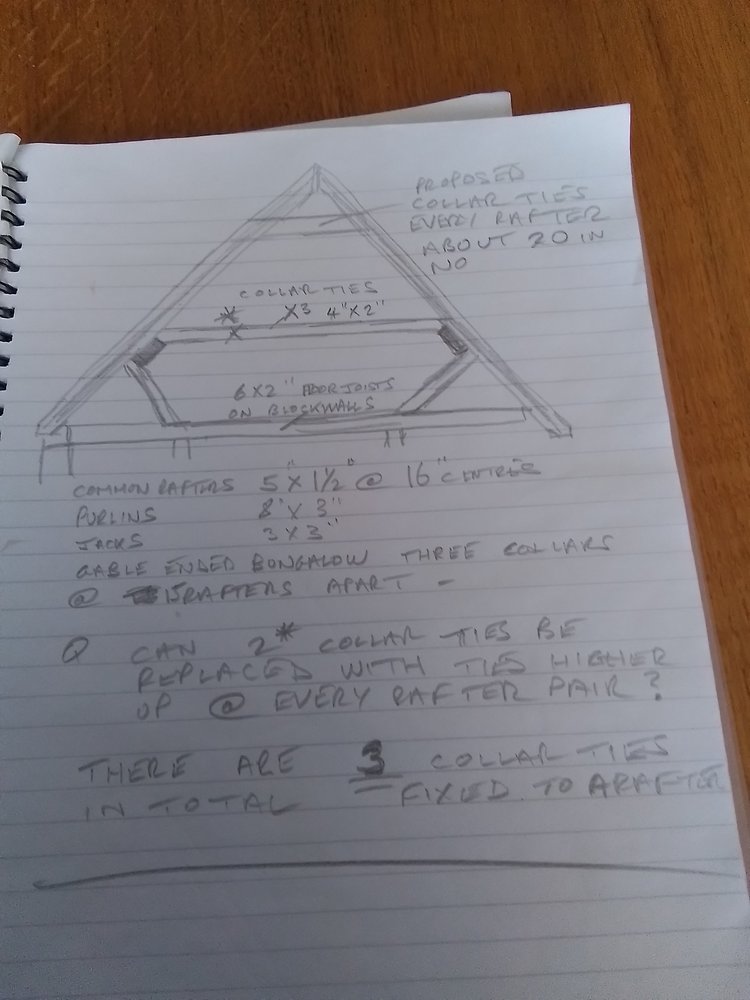 PROPOSED
COLLAR TIES
EVERY RAFTER
ABOUT 20 IN
NO
COLLAR TIES
* X3 4"X2"
X
6X2" FLOOR JOISTS
ON BLOCKWALLS
COMMON RAFTERS 5"X1½" @ 16" CENTRES
PURLINS 8"X3"
JACKS 3X3"
GABLE ENDED BONGALOW THREE COLLARS
@ 5 RAFTERS APART -
Q CAN 2* COLLAR TIES BE
REPLACED WITH TIES HIGHER
UP @ EVERY RAFTER PAIR?
THERE ARE 3 COLLAR TIES
IN TOTAL FIXED TO A RAFTER